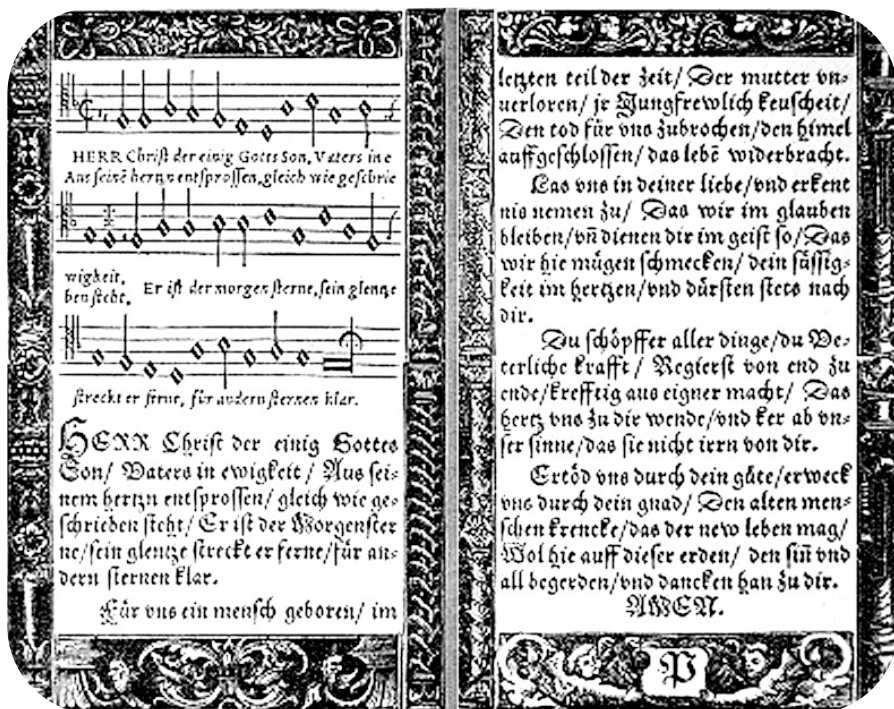 HERR Christ der einig Gotts Son, Vaters in e
Aus seinē hertzn entsprossen, gleich wie geschrie
wigkeit,
ben steht,
Er ist der morgen sterne, sein glentze
streckt er ferne, für andern sternen klar.
HERR Christ der einig Gottes
Son/ Vaters in ewigkeit/ Aus sei-
nem hertzn entsprossen/ gleich wie ge-
schrieben steht/ Er ist der Morgenster
ne/sein glentze streckt er ferne/für an-
dern sternen klar.
Für vns ein mensch geboren/ im
letzten teil der zeit/ Der mutter vn-
uerloren/ jr Jungfrewlich keuscheit/
Den tod für vns zubrochen/den himel
auffgeschlossen/ das lebē widerbracht.
Las vns in deiner liebe/vnd erkent
nis nemen zu/ Das wir im glauben
bleiben/vñ dienen dir im geist so/Das
wir hie mügen schmecken/ dein süssig-
keit im hertzen/vnd dürsten stets nach
dir.
Du schöpffer aller dinge/du Ve-
terliche krafft/ Regierst von end zu
ende/krefftig aus eigner macht/ Das
hertz vns zu dir wende/vnd ker ab vn-
ser sinne/das sie nicht irrn von dir.
Ertöd vns durch dein güte/erweck
vns durch dein gnad/ Den alten men-
schen krencke/das der new leben mag/
Wol hie auff dieser erden/ den siñ vnd
all begerden/vnd dancken han zu dir.
AMEN.
P